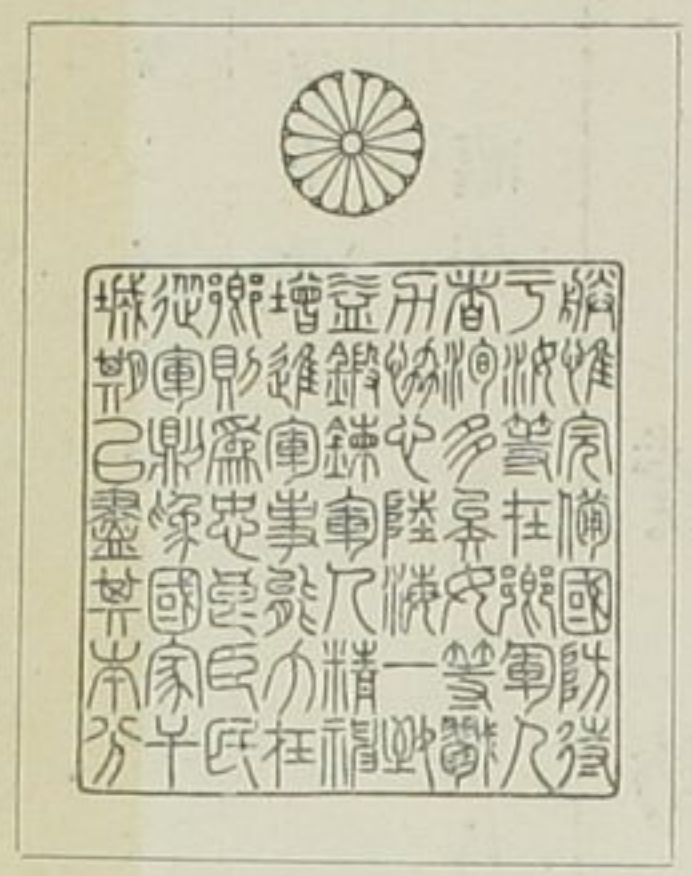 朕惟完備國防待
于汝等在鄉軍人
者洵多矣女等戮
力協心陸海一致
益鍛鍊軍人精神
增進軍事能力在
鄉則爲忠良臣民
從軍則爲國家干
城期以盡其本分